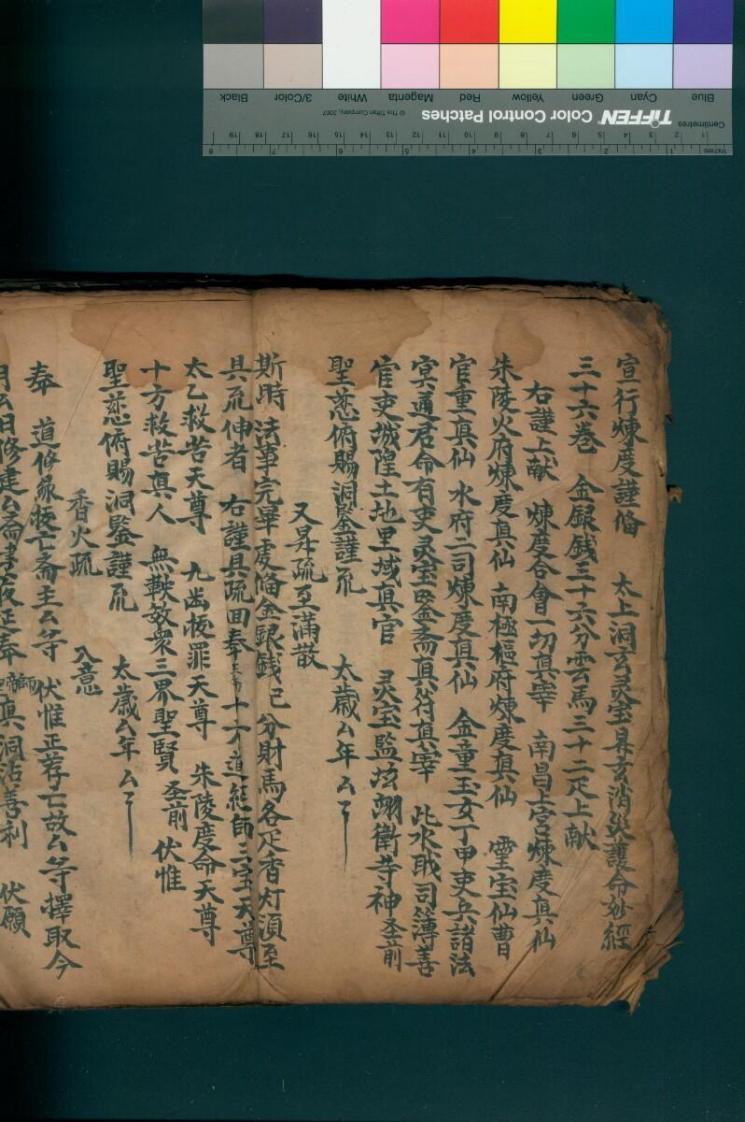 宣行煉度謹俻　太上洞玄灵宝昇玄消災護命妙經
三十六巻　金銀錢三十六分雲馬三十二疋上献
右謹上献　煉度合會一切真宰　南昌上宮煉度真仙
朱陵火府煉度真仙　南極樞府煉度真仙　霊宝仙曹
官重真仙　水府二司煉度真仙　金童玉女丁甲吏兵諸法
冥通君命有吏灵宝監斋真符真宰　此水職司簿善
官吏城隍土地里域真官　灵宝監坛翊衛等神圣前
聖慈俯賜洞鋻謹疏　太歲厶年厶
又昇疏至滿散
斯時法事完畢處俻金銀錢已分財馬各疋香灯湏至
具疏伸者　右謹具疏回奉十方道經師三宝天尊
太乙救苦天尊　九幽拔罪天尊　朱陵度命天尊
十方救苦真人　無鞅敉衆三界聖賢　圣前　伏惟
聖慈俯賜洞鋻謹疏　太歲厶年厶
香火疏　入意
奉　道修彔拔亡斋主厶等　伏惟正荐亡故厶等擇取今
月厶日修建厶斋夜疋奉　真洞沾善利　伏願
Blue
Cyan
Green
Yellow
Red
Magenta
White
3/Color
Black
TIFFEN Color Control Patches
© The Tiffen Company, 2007
Centimetres
Inches
1 2 3 4 5 6 7 8 9 10 11 12 13 14 15 16 17 18 19
1 2 3 4 5 6 7 8